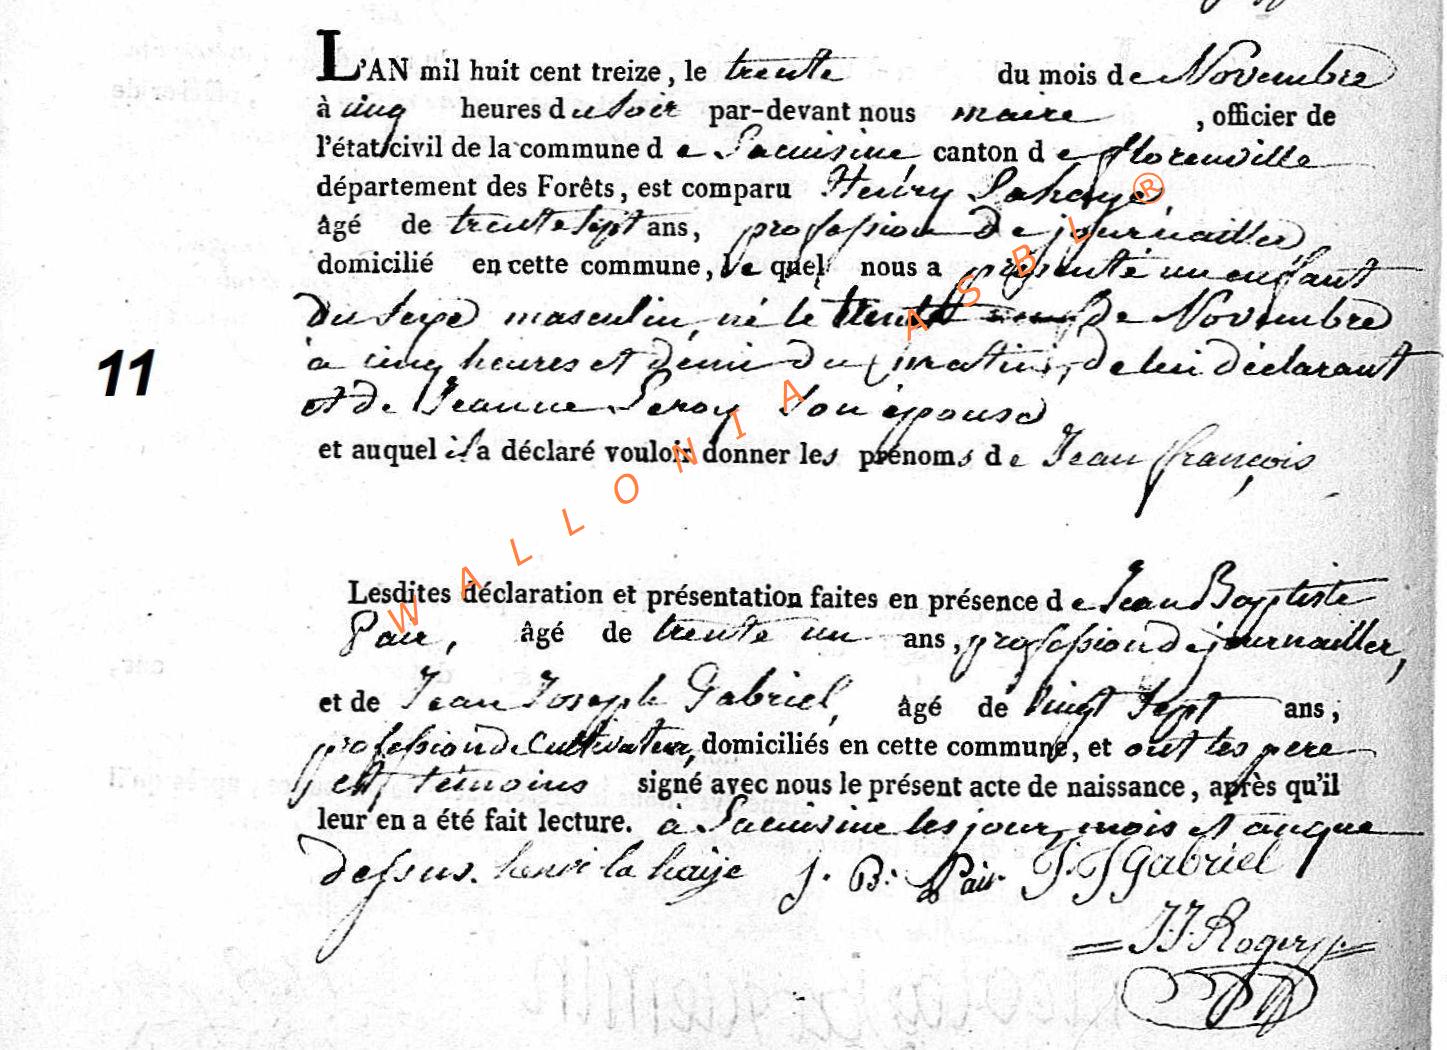 L'AN mil huit cent treize, le trente du mois de Novembre
à cinq heures du soir par-devant nous maire, officier de
l'état civil de la commune de Lacuisine, canton de florenville
département des Forêts, est comparu Henry Lahaye,
âgé de trente sept ans, profession de journailler,
domicilié en cette commune, le quel nous a présenté un enfant
du sexe masculin, né le trente de Novembre
11
à cinq heures et demi du matin, de lui déclarant
et de Jeanne Leroy son épouse
et auquel il a déclaré vouloir donner les prénoms de Jean françois,
Lesdites déclaration et présentation faites en présence de Jean Baptiste
Pair, âgé de trente un ans, profession de journailler,
et de Jean Joseph Gabriel, âgé de vingt sept ans,
profession de Cultivateur, domiciliés en cette commune, et ont les pere
et témoins signé avec nous le présent acte de naissance, après qu'il
leur en a été fait lecture. à Lacuisine les jour, mois et an que
dessus. henri la haije J. B. Pair J. J Gabriel
J. J. Roger
WALLONIA ASBL ®